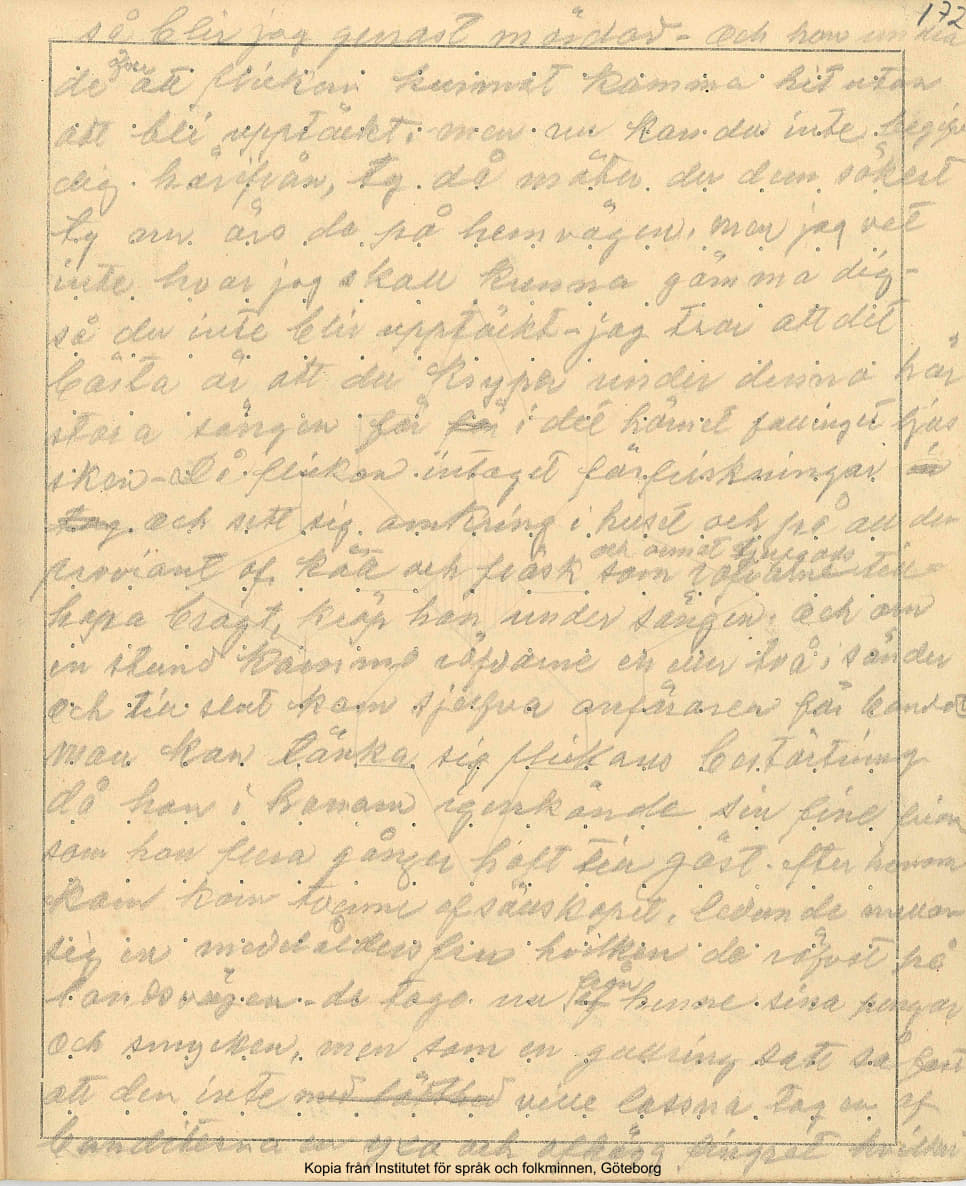 172
så blir jag genast mördad - och hon undra
de öfver att flickan kunnat komma hit utan
att bli upptäckt, men nu kan du inte begifva
dig härifrån, ty då möter du dem säkert
ty nu äro de på hemvägen, men jag vet
inte hvar jag skall kunna gömma dig -
så du inte blir upptäckt - jag tror att det
bästa är att du kryper under denna här
stora sängen för i det hörnet faller inget ljus
sken - Då flickan intagit förfriskningar
och sett sig omkring i huset och på all den
proviant af kött och fläsk och annat som röfvarne till-
hopa bragt, kröp hon under sängen. och om
en stund kommo röfvarne en eller två i sänder
och till slut kom sjelfva anföraren för bandet
man kan tänka sig flickans bestörtning
då hon i honom igenkände sin fine friare
som hon flera gånger haft till gäst. efter honom
kom tvenne af sällskapet, ledande mellan
sig en medelålders fru hvilken de röfvat på
landsvägen - de togo nu från henne sina pengar
och smycken, men som en guldring satt så fast
att den inte ville lossna tog en af
banditerna en yxa och afhögg fingret hvilket
Kopia från Institutet för språk och folkminnen, Göteborg